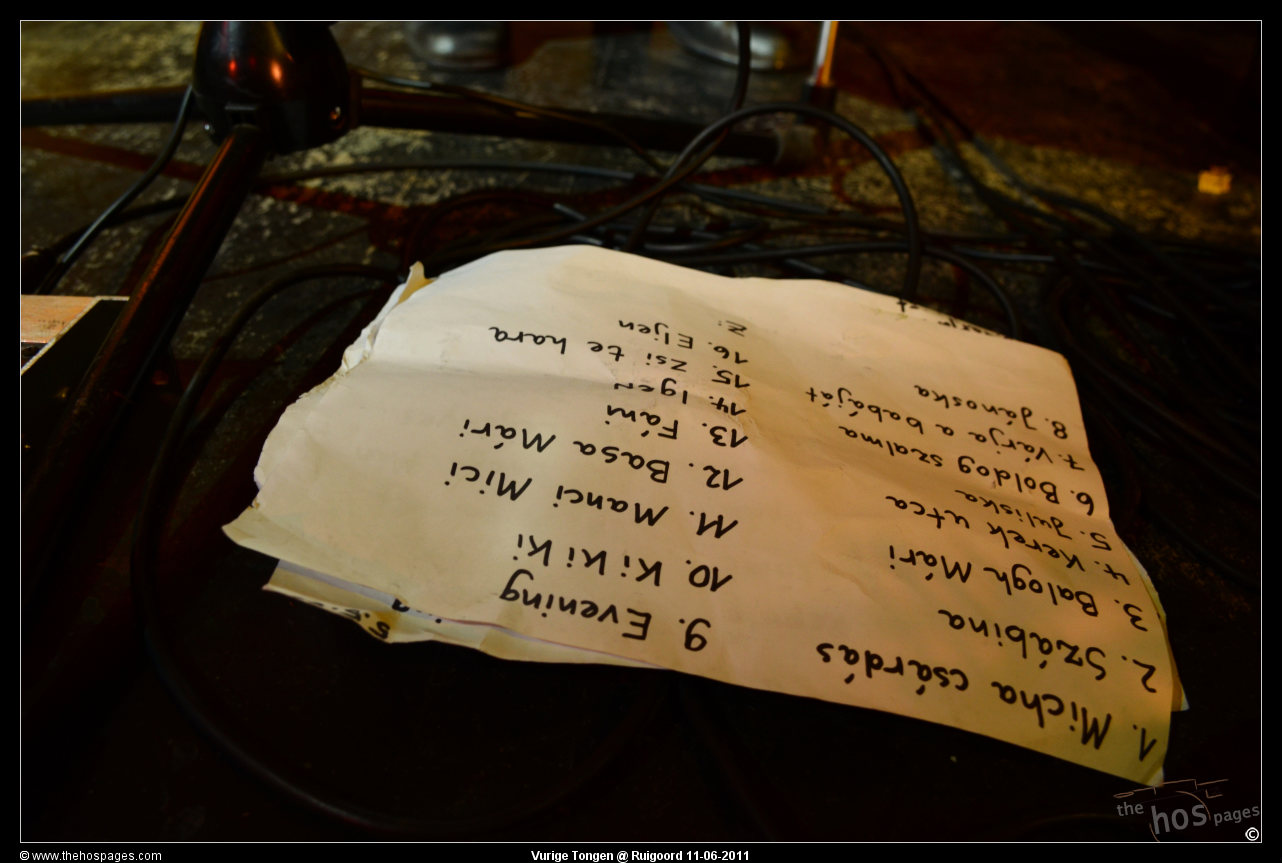 1. Micha csárdás
2. Szábina
3. Balogh Mári
4. Kerek utca
5. Juliska
6. Boldog szalma
7. Várja a babáját
8. Jánoska
9. Evening
10. Ki Ki Ki
11. Manci Mici
12. Basa Mári
13. Fáni
14. Igen
15. Zsi te hara
16. Eljen
z.
the hos pages
©
© www.thehospages.com
Vurige Tongen @ Ruigoord 11-06-2011